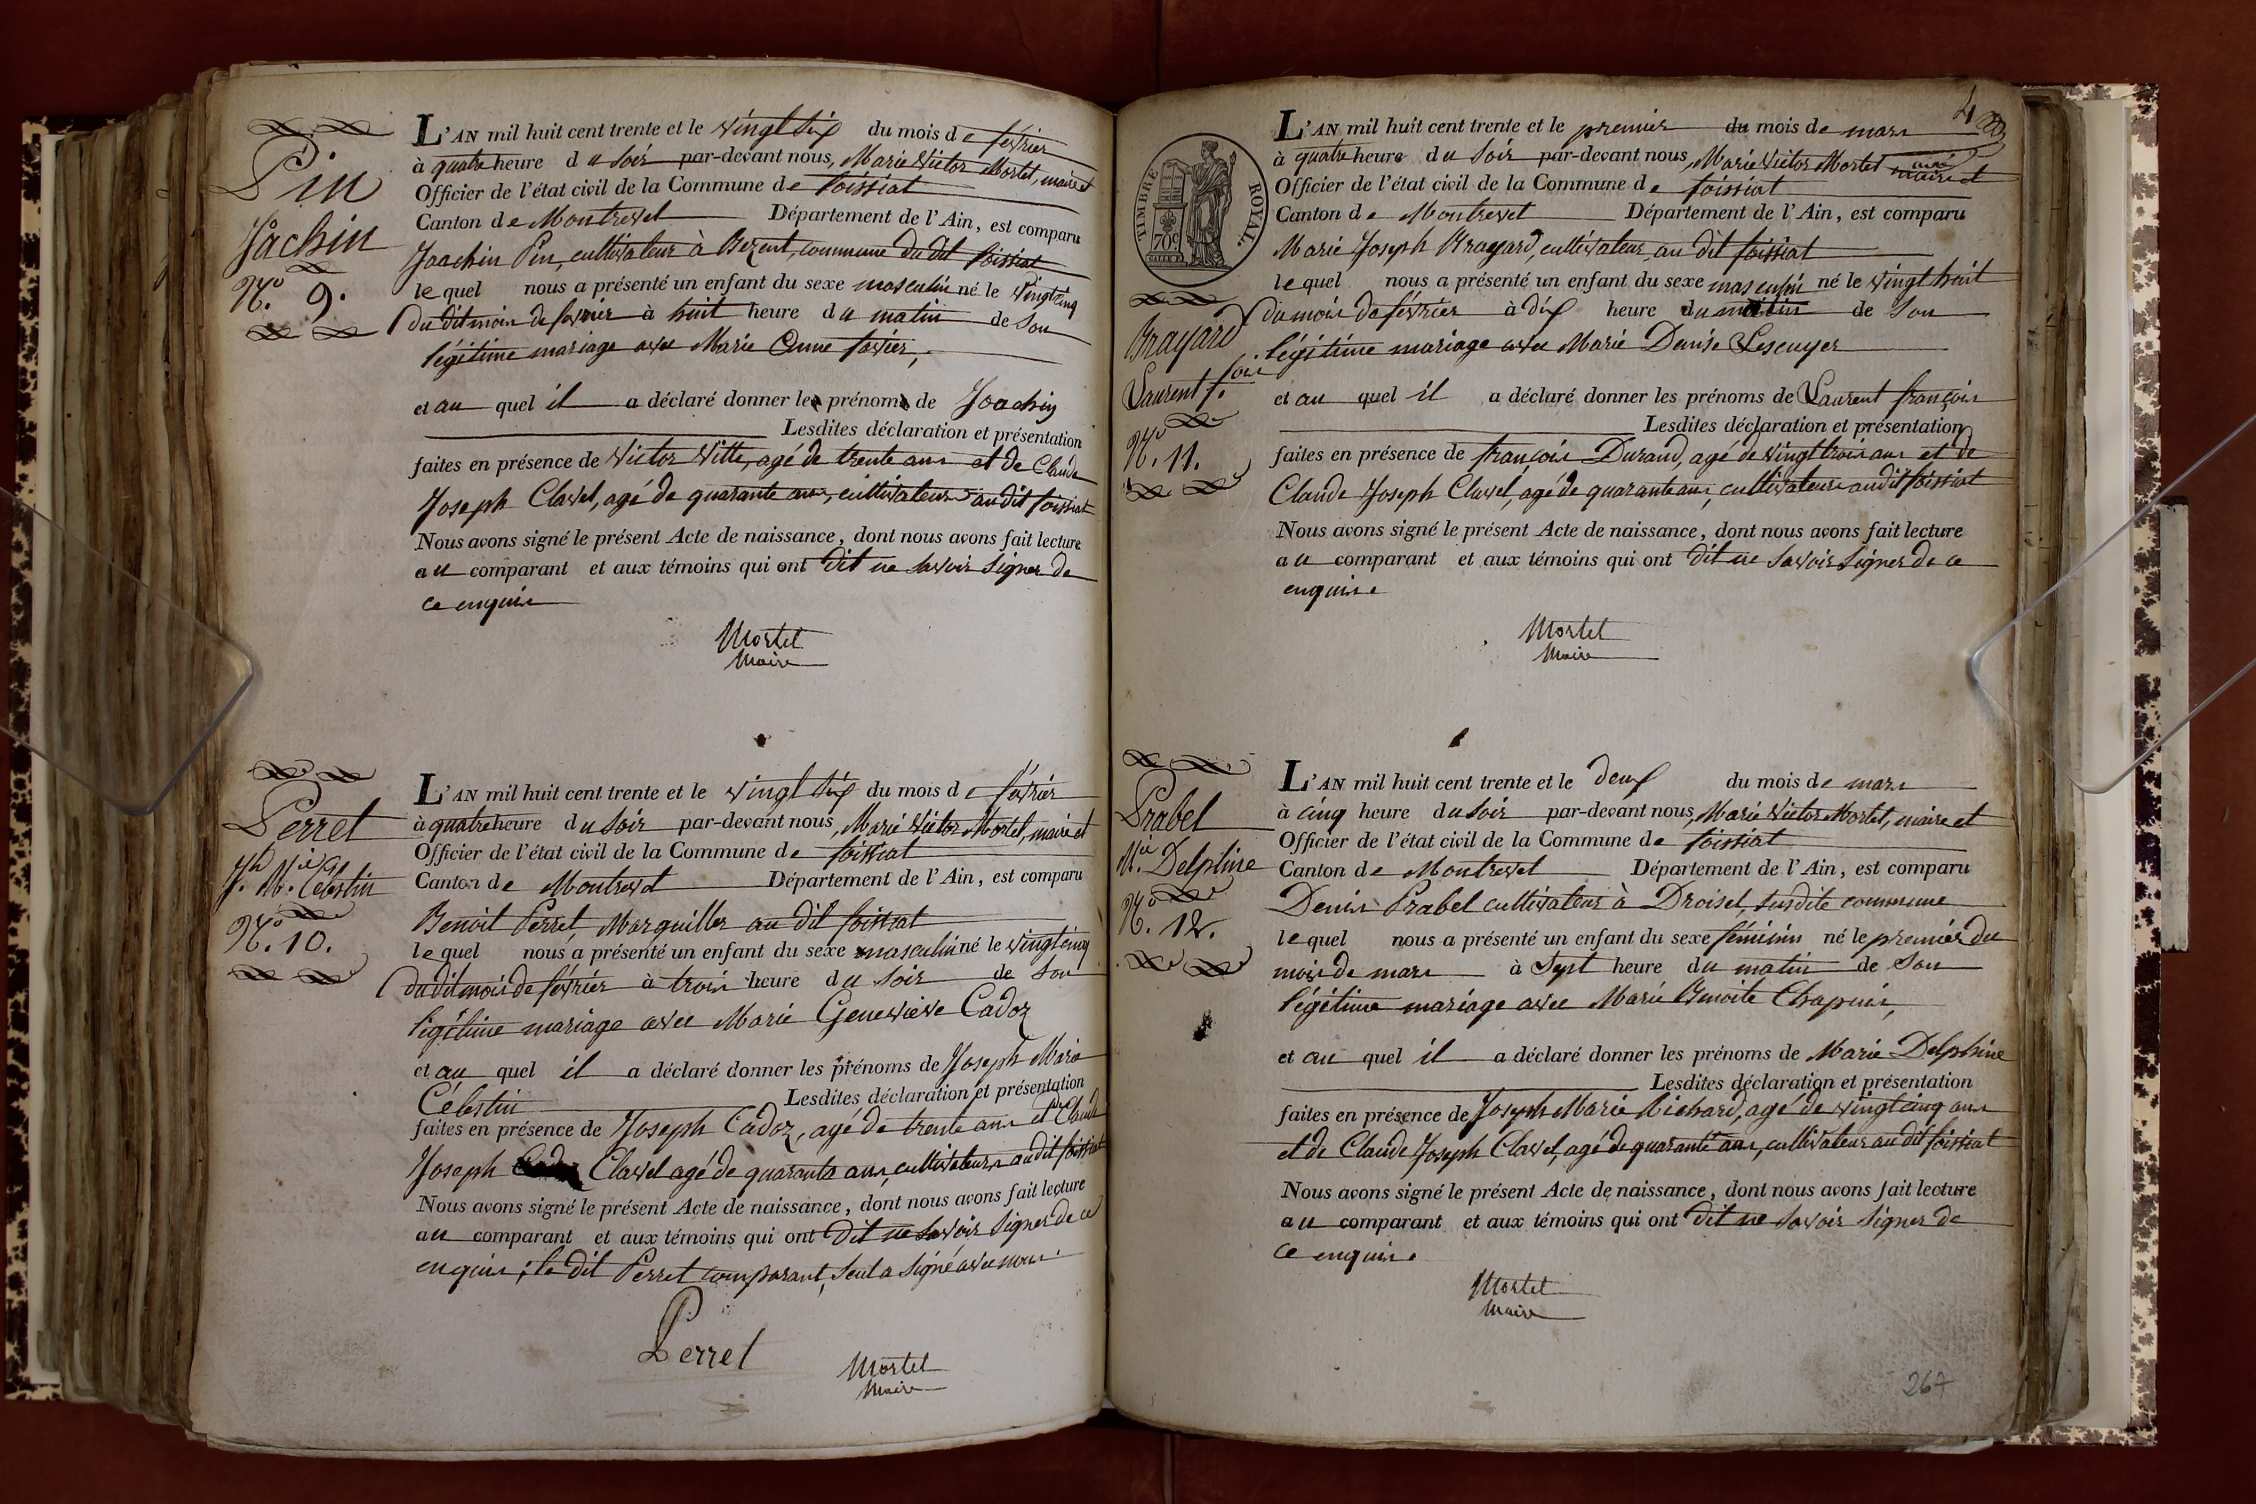 Pin
Joachin
N.º 9.
L'AN mil huit cent trente et le vingt six du mois de février
à quatre heure du soir par-devant nous, Marie Victor Mortel, maire et
Officier de l'état civil de la Commune de foissiat
Canton de Montrevel Département de l'Ain, est comparu
Joachin Pin, cultivateur à Bezent, commune du dit foissiat
lequel nous a présenté un enfant du sexe masculin né le vingt cinq
du dit mois de février à huit heure du matin de Son
légitime mariage avec Marie Anne favier,
et au quel il a déclaré donner les prénoms de Joachin
Lesdites déclaration et présentation
faites en présence de Victor Vitte, agé de trente ans et de Claude
Joseph Clavel, agé de quarante ans, cultivateurs au dit foissiat
Nous avons signé le présent Acte de naissance, dont nous avons fait lecture
au comparant et aux témoins qui ont dit ne Savoir Signer de
ce enquis
Mortel
Maire
Perret
Jh. Mie. Célestin
N.º 10.
L'AN mil huit cent trente et le vingt six du mois de février
à quatre heure du Soir par-devant nous, Marie Victor Mortel, maire et
Officier de l'état civil de la Commune de foissiat
Canton de Montrevel Département de l'Ain, est comparu
Benoit Perret, Marguiller au dit foissiat
lequel nous a présenté un enfant du sexe masculin né le vingt cinq
du dit mois de février à trois heure du Soir de Son
légitime mariage avec Marie Genevieve Cadoz
et au quel il a déclaré donner les prénoms de Joseph Marie
Célestin Lesdites déclaration et présentation
faites en présence de Joseph Cadoz, agé de trente ans et de Claude
Joseph Clavel agé de quarante ans, cultivateurs au dit foissiat
Nous avons signé le présent Acte de naissance, dont nous avons fait lecture
au comparant et aux témoins qui ont Dit ne Savoir Signer de ce
enquis; le dit Perret comparant, Seul a Signé avec nous.
Perret
Mortel
Maire
4
TIMBRE ROYAL
70c
L'AN mil huit cent trente et le premier du mois de mars
à quatre heure du Soir par-devant nous, Marie Victor Mortel maire et
Officier de l'état civil de la Commune de foissiat
Canton de Montrevel Département de l'Ain, est comparu
Marie Joseph Brayard, cultivateur, au dit foissiat
lequel nous a présenté un enfant du sexe masculin né le vingt huit
du mois de février à dix heure du matin de Son
Brayard
légitime mariage avec Marie Denise Lescuyer
Laurent f.cois
et au quel il a déclaré donner les prénoms de Laurent françois
Lesdites déclaration et présentation
N.º 11.
faites en présence de françois Durand, agé de vingt trois ans et de
Claude Joseph Clavel, agé de quarante ans, cultivateurs au dit foissiat
Nous avons signé le présent Acte de naissance, dont nous avons fait lecture
au comparant et aux témoins qui ont dit ne Savoir Signer de ce
enquis.
Mortel
Maire
Prabel
Mie. Delphine
N.º 12.
L'AN mil huit cent trente et le deux du mois de mars
à cinq heure du Soir par-devant nous, Marie Victor Mortel, maire et
Officier de l'état civil de la Commune de foissiat
Canton de Montrevel Département de l'Ain, est comparu
Denis Prabel cultivateur à Droisel, susdite commune
lequel nous a présenté un enfant du sexe féminin né le premier du
mois de mars à Sept heure du matin de Son
légitime mariage avec Marie Benoite Chapuis,
et au quel il a déclaré donner les prénoms de Marie Delphine
Lesdites déclaration et présentation
faites en présence de Joseph Marie Richard, agé de vingt cinq ans
et de Claude Joseph Clavel, agé de quarante ans, cultivateurs au dit foissiat
Nous avons signé le présent Acte de naissance, dont nous avons fait lecture
au comparant et aux témoins qui ont dit ne Savoir Signer de
ce enquis.
Mortel
Maire
267